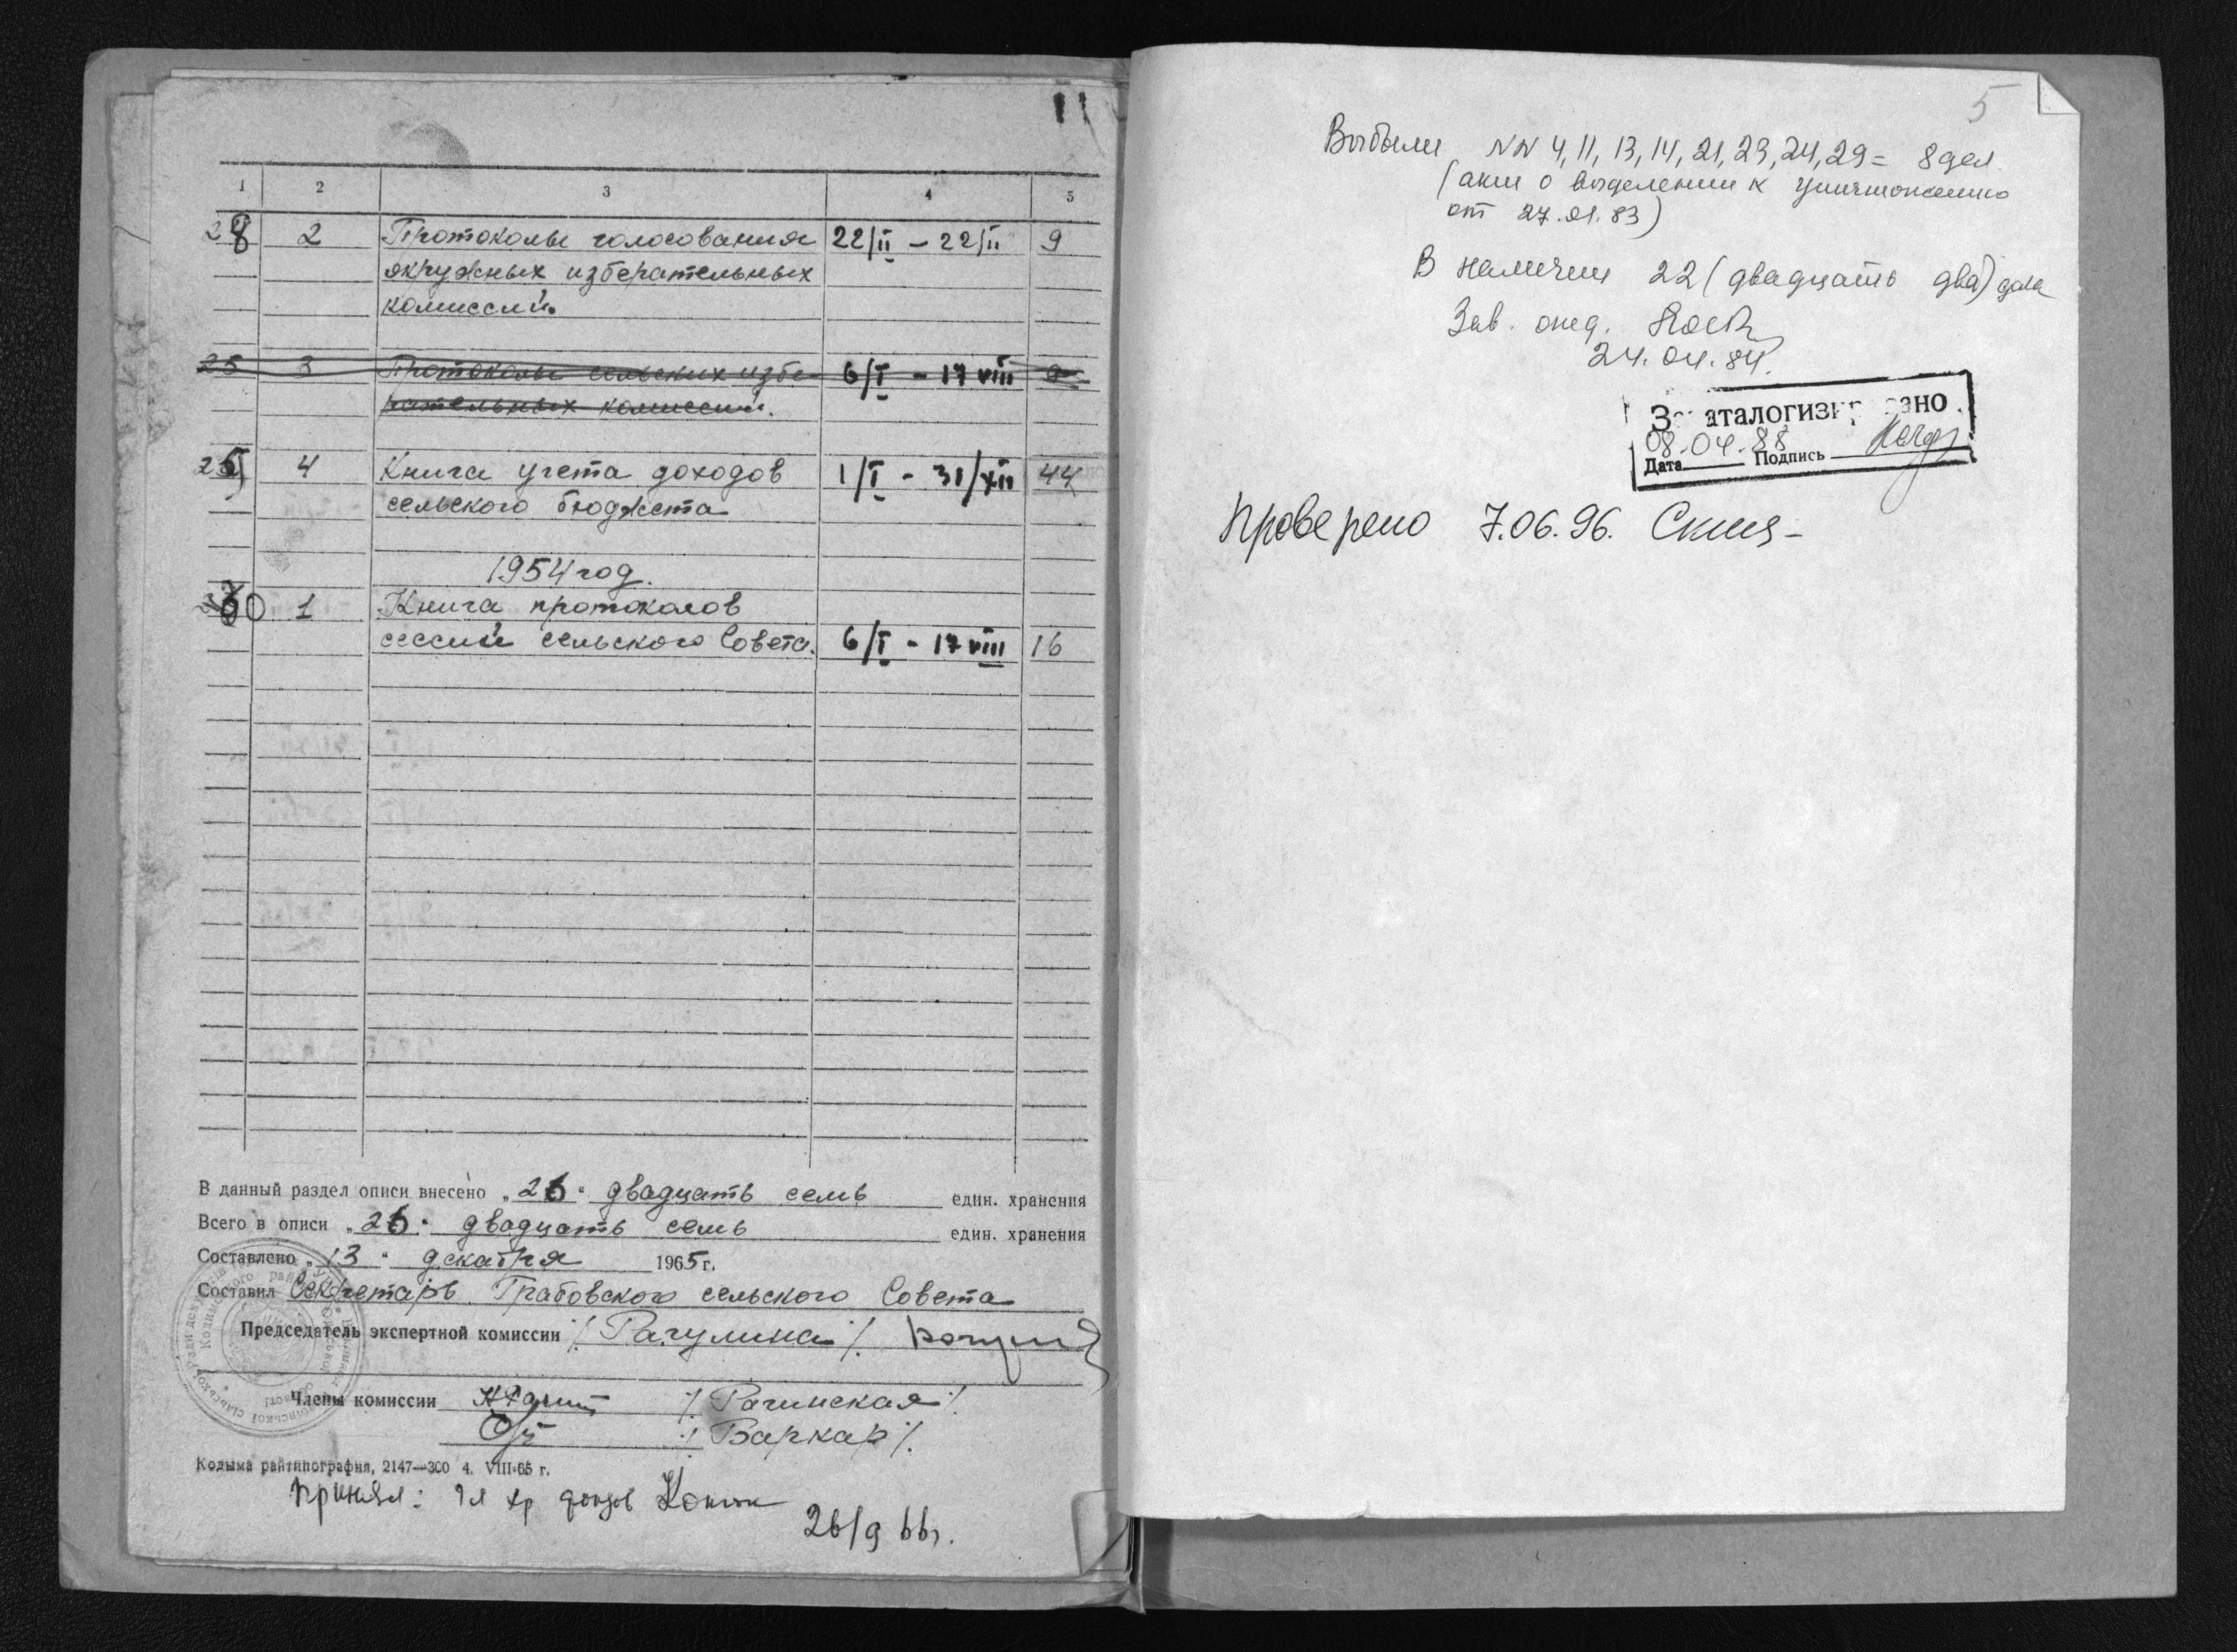 1 2 3 4 5
28 2 Протоколы голосования 22/II – 22/II 9
окружных избирательных
комиссий.
25 3 Протоколы сельских избе- 6/I – 17 VIII 9
рательных комиссий.
4 Книга учета доходов 1/I - 31/XII 44
сельского бюджета
1954 год.
30 1 Книга протоколов
сессий сельского Совета. 6/I - 17 VIII 16
В данный раздел описи внесено „26“ двадцать семь един. хранения
Всего в описи „26“ двадцать семь един. хранения
Составлено „13“ декабря 1965 г.
Составил Секретарь Грабовского сельского Совета
Председатель экспертной комиссии /Рагулина/
Члены комиссии /Рачинская/
/Варкар/.
Кодыма райтипография, 2147—300 4. VIII-65 г.
Принял: Гл хр фондов
26/9 66г.
5
Выбыли NN 4, 11, 13, 14, 21, 23, 24, 29 = 8 дел
(акт о выделении к уничтожению
от 27.01.83)
В наличии 22 (двадцать два) дела
Зав. отд.
24.04.84.
Закаталогизировано
08.04.88
Дата Подпись
Проверено 7.06.96.